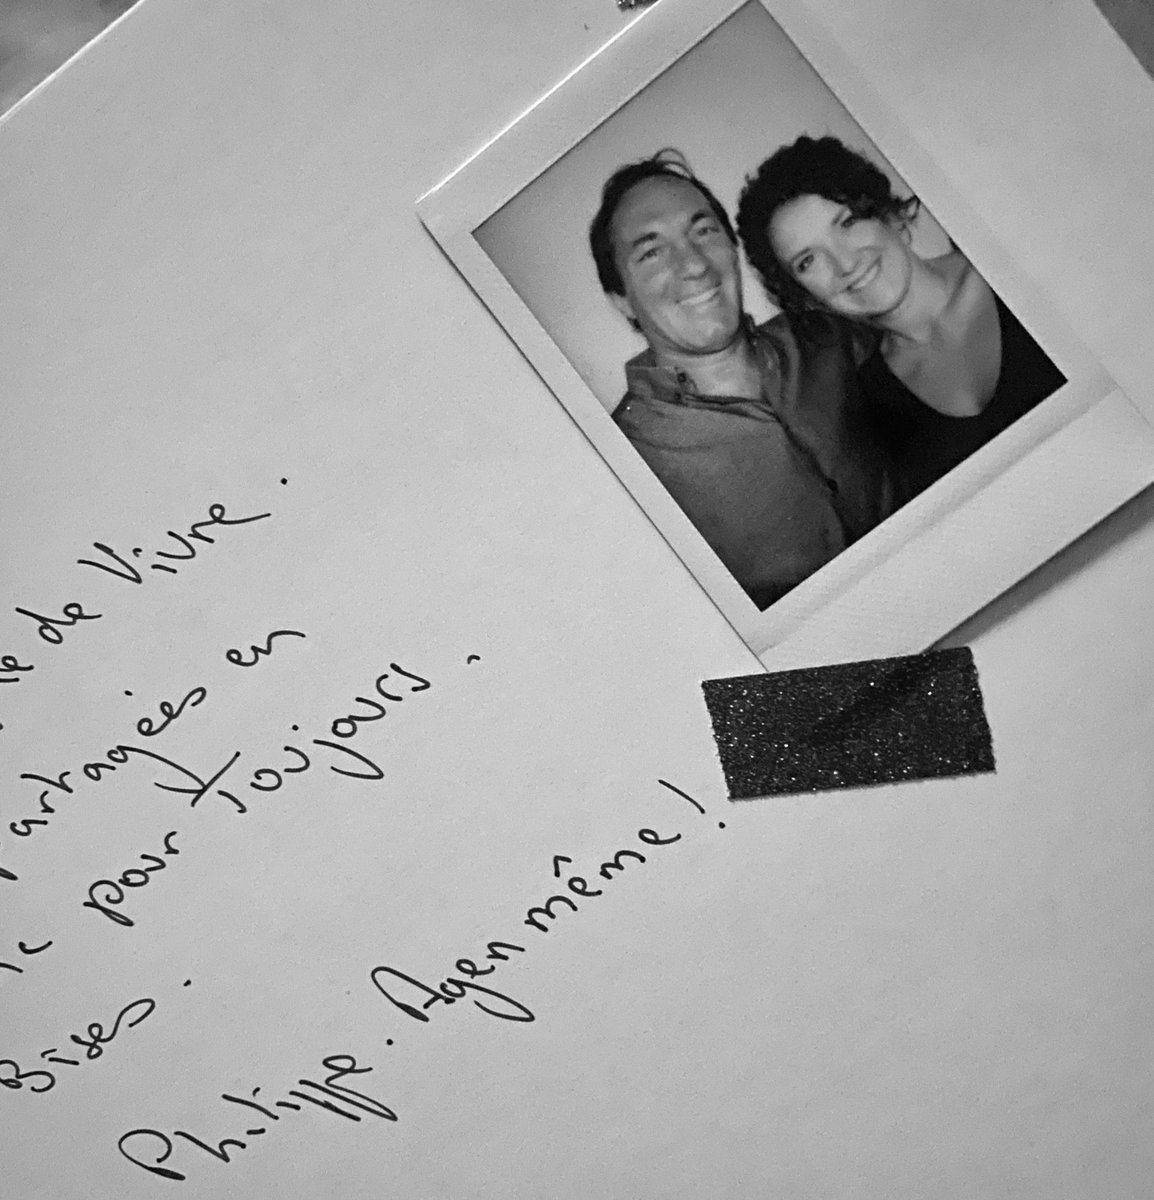 de Vivre.
partagées en
pour toujours.
Bises.
Philippe. Agen même!